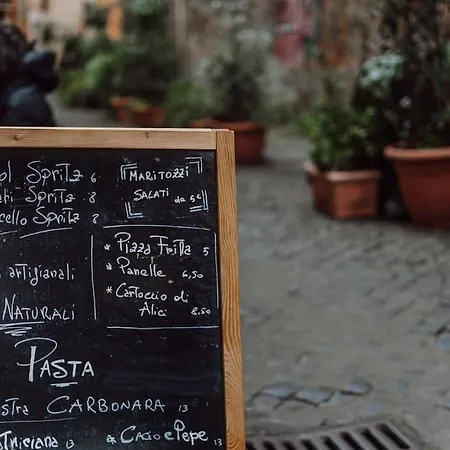 ol Spritz 6
ari Spritz 8
cello Spritz 8
MARITOZZI
SALATI da 5€
* Pizza Fritta 5
* Panelle 6,50
* Cartoccio di
Alici 8.50
artigianali
NATURALI
PASTA
stra CARBONARA 13
atriciana 13 CACIO e Pepe 13